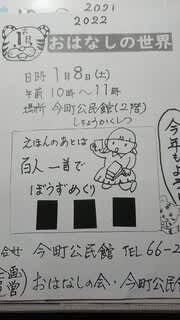 2021
2022
1月
おはなしの世界
日時 1月8日(土)
午前 10時〜11時
場所 今町公民館(2階)
しちょうかくしつ
えほんのあとは
百人一首で
ぼうずめくり
今年も
よろ
今町公民館 TEL 66-2
おはなしの会・今町公民